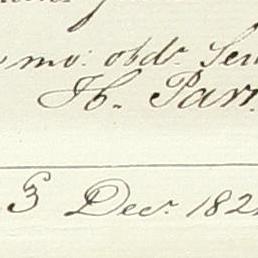 mo: obdt. Ser
H. Parr
3 Decr. 182